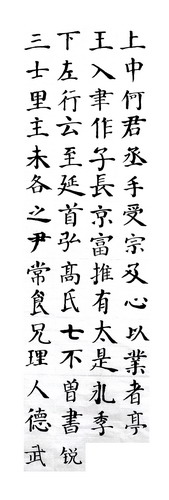 上中何君丞手受宗及心以業者亭
王入聿作子長京富推有太是礼季
下左行云至延首弘髙氏七不曽書锐
三士里主未各之尹常食兄理人德武